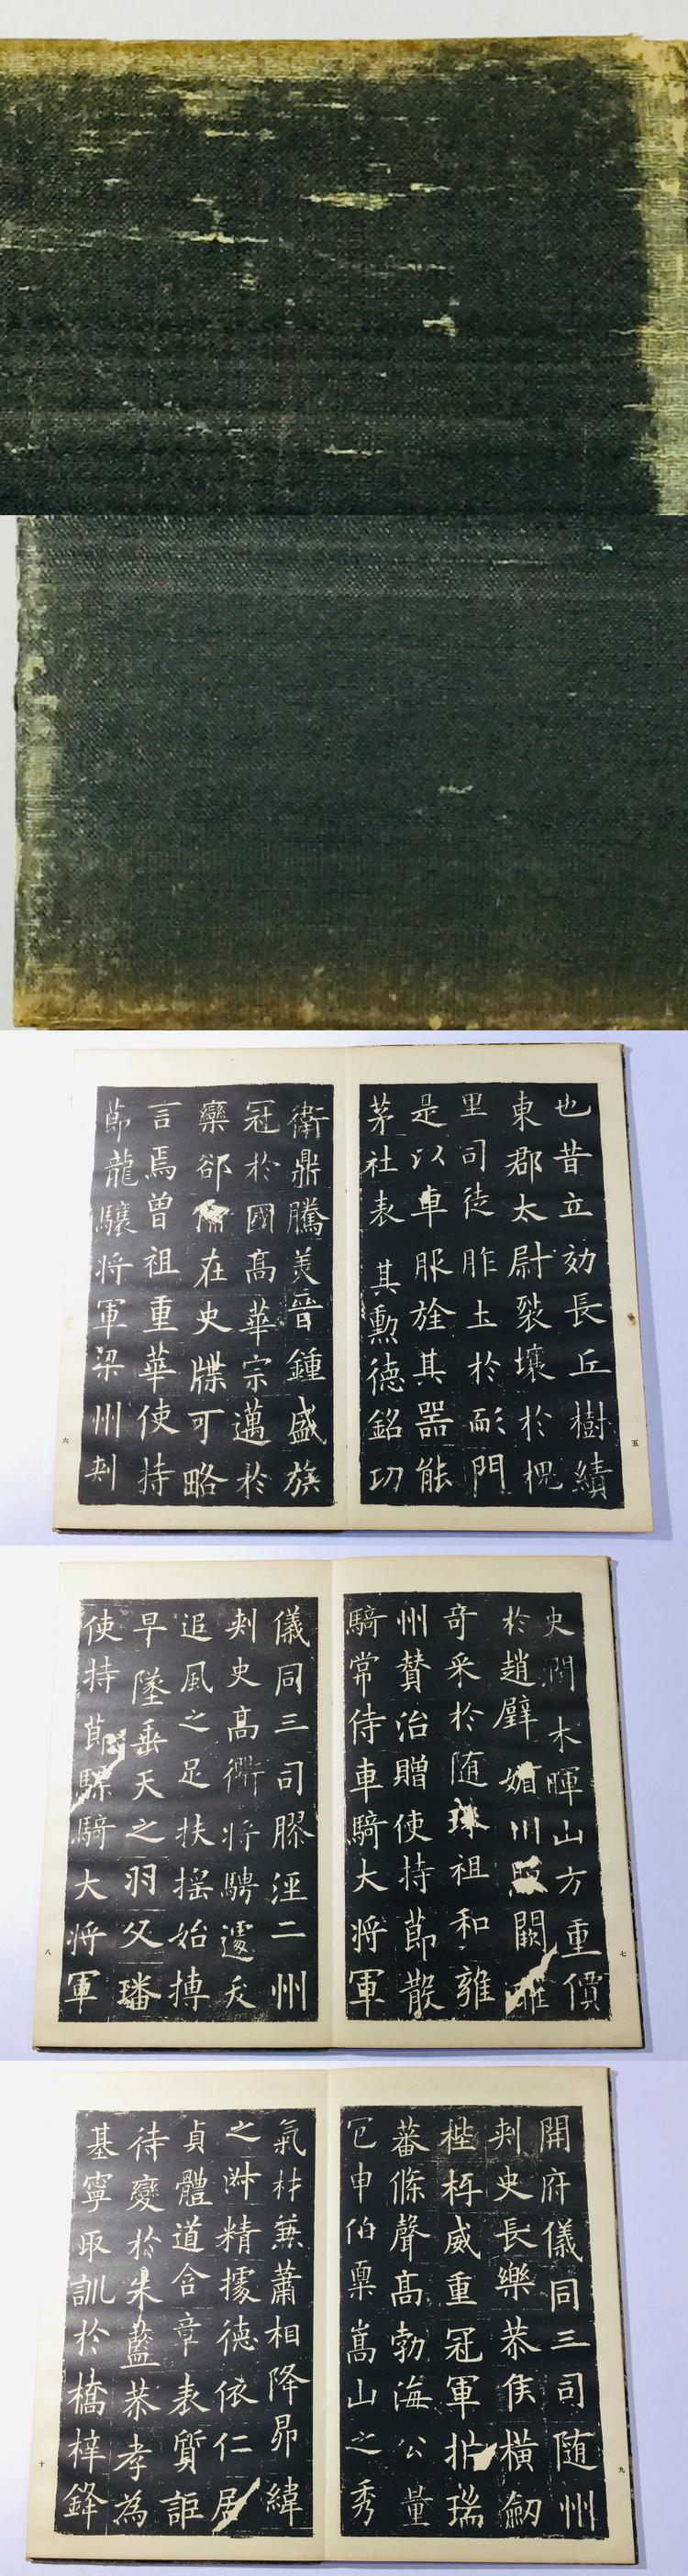 也昔立効長丘樹績
東郡太尉裂壤於槐
里司徒胙土於耏門
是以車服旌其器能
茅社表其勲德銘功
五
衛鼎騰美晉鍾盛族
冠於國高華宗邁於
欒郤在史牒可略
言焉曾祖重華使持
節龍驤将軍梁州刺
六
史潤木暉山方重價
於趙璧媚川照闕
奇采於随珠祖和雍
州贊治贈使持節散
騎常侍車騎大将軍
七
儀同三司膠涇二州
刺史高衢将騁遽夭
追風之足扶搖始摶
早墜垂天之羽父璠
使持節驃騎大将軍
八
開府儀同三司随州
刺史長樂恭侯橫劒
梐枑威重冠軍折瑞
蕃條聲高勃海公量
包申伯稟嵩山之秀
九
氣材兼蕭相降昴緯
之淋精據德依仁居
貞體道含章表質詎
待變於朱藍恭孝為
基寧取訓於橋梓鋒
十